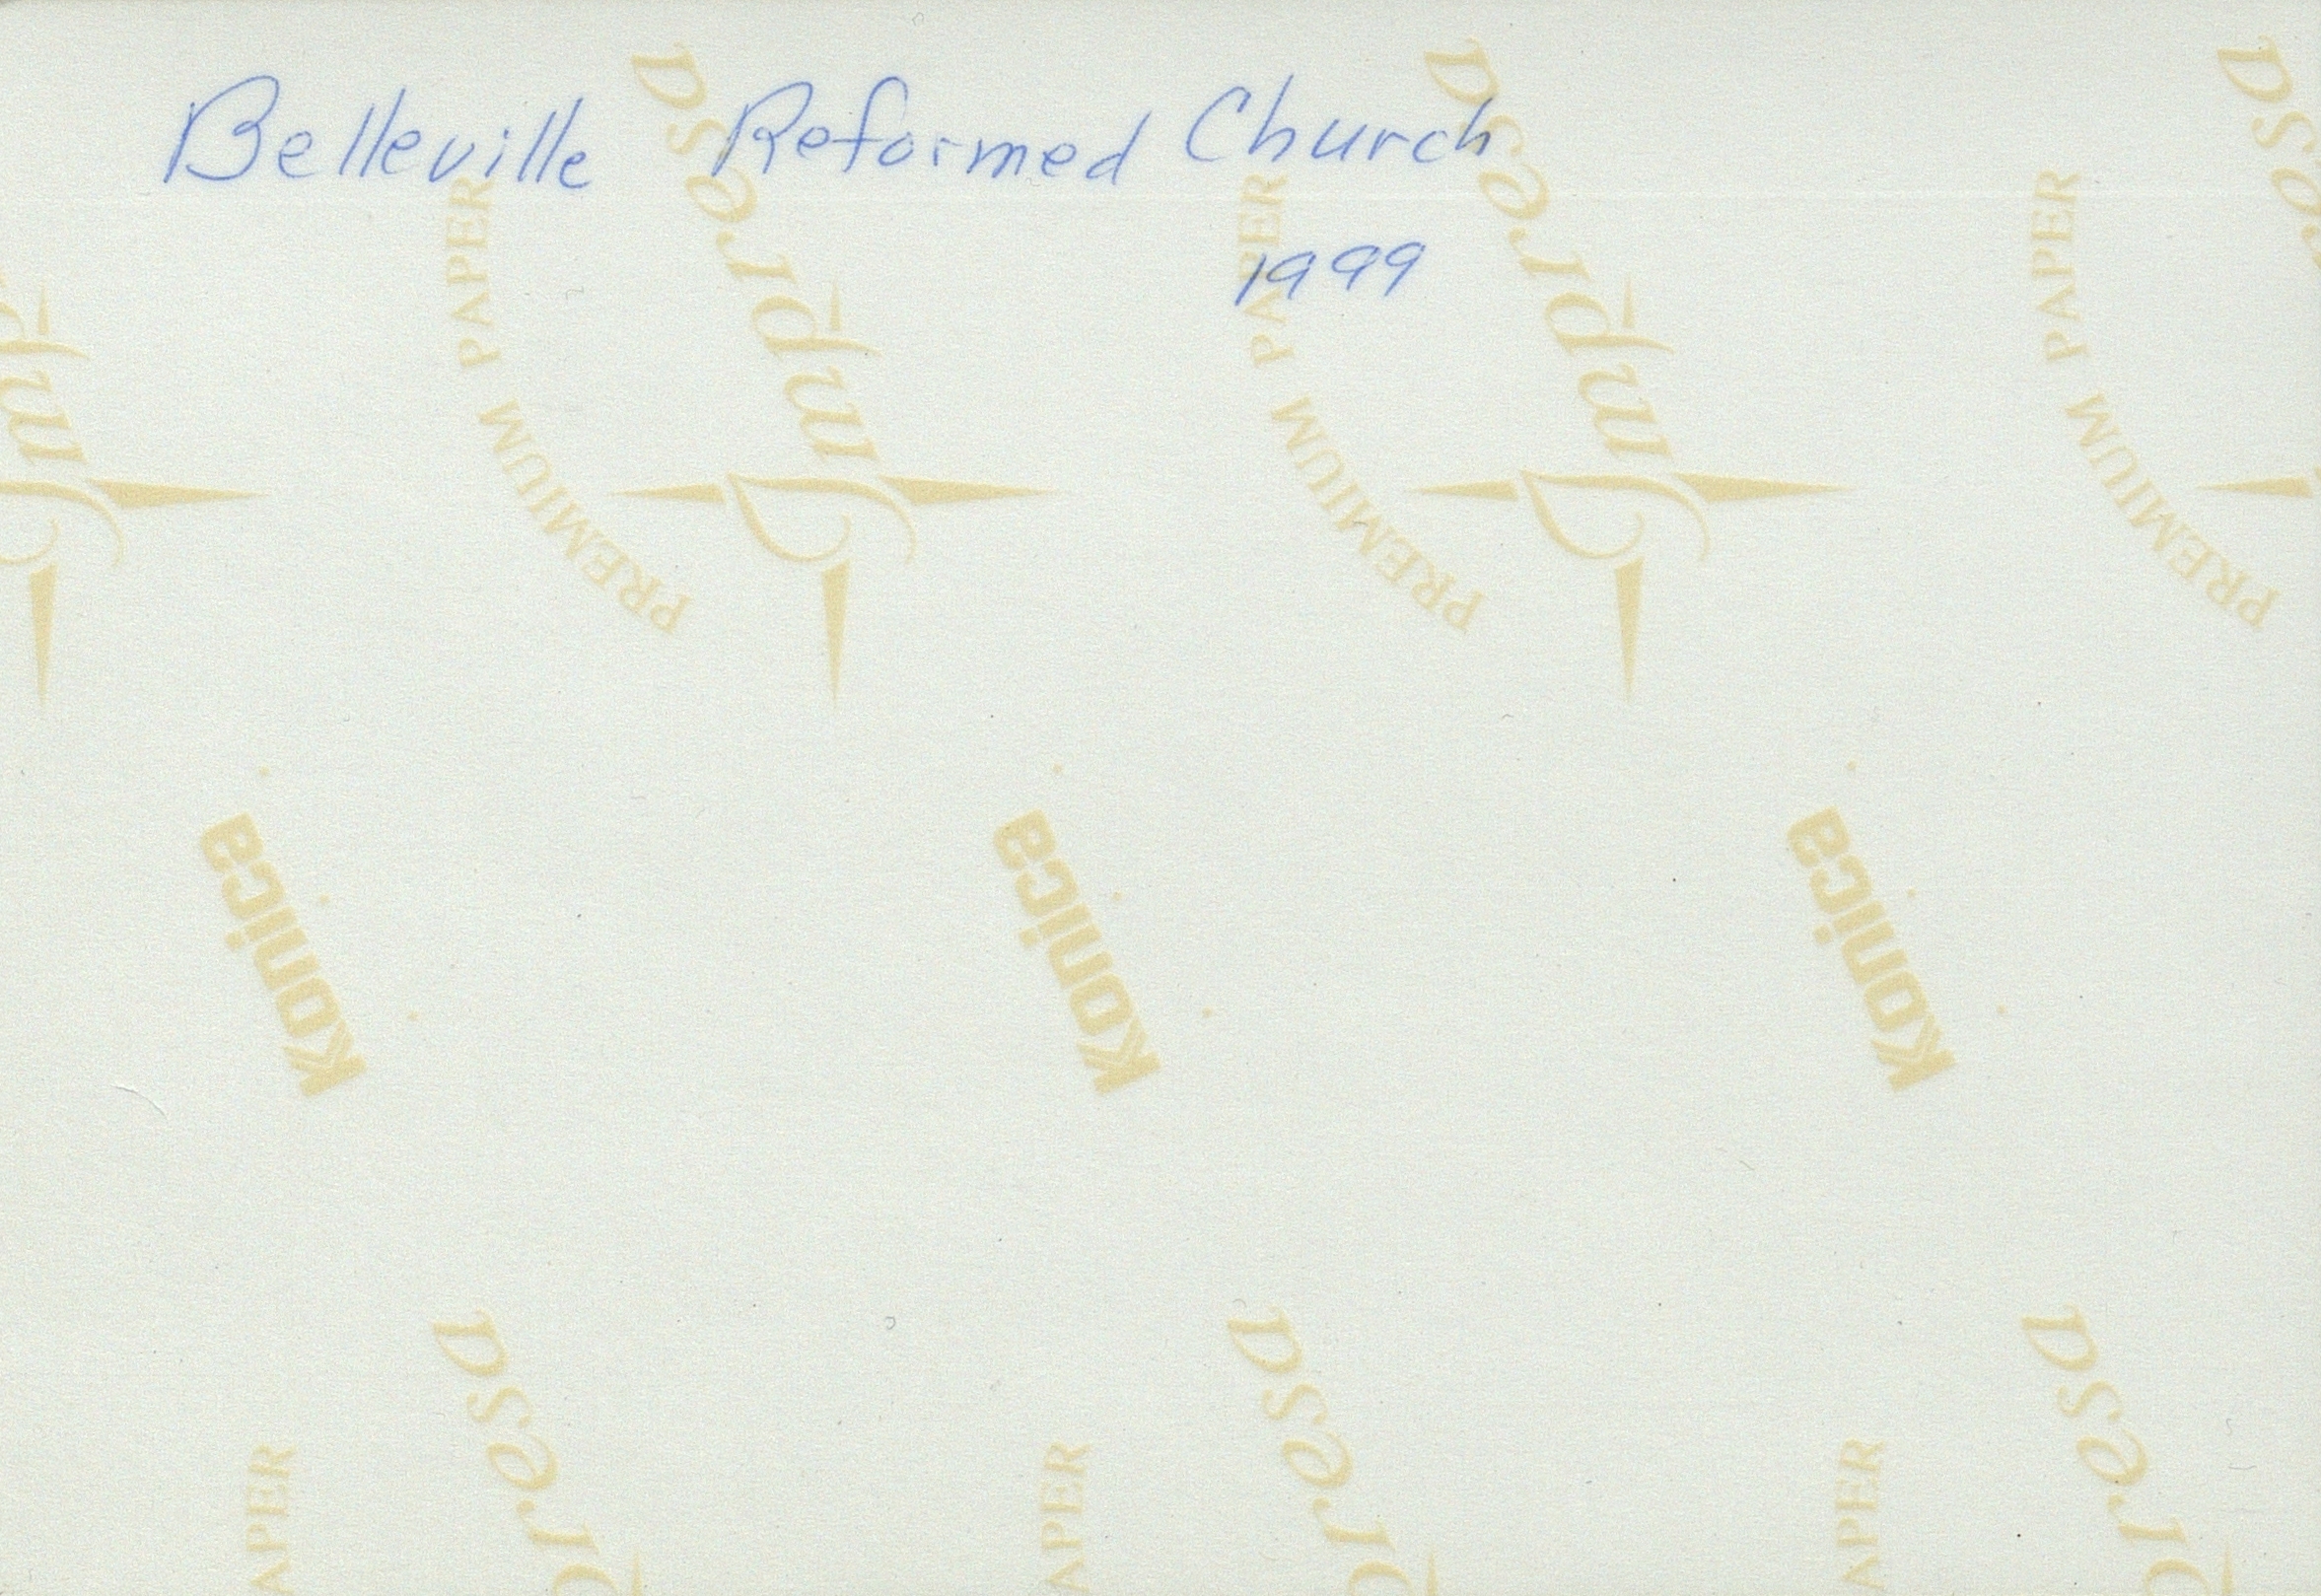 Belleville Reformed Church
1999
Impresa
PREMIUM PAPER
Impresa
PREMIUM PAPER
PREMIUM PAPER
Konica
Konica
Konica